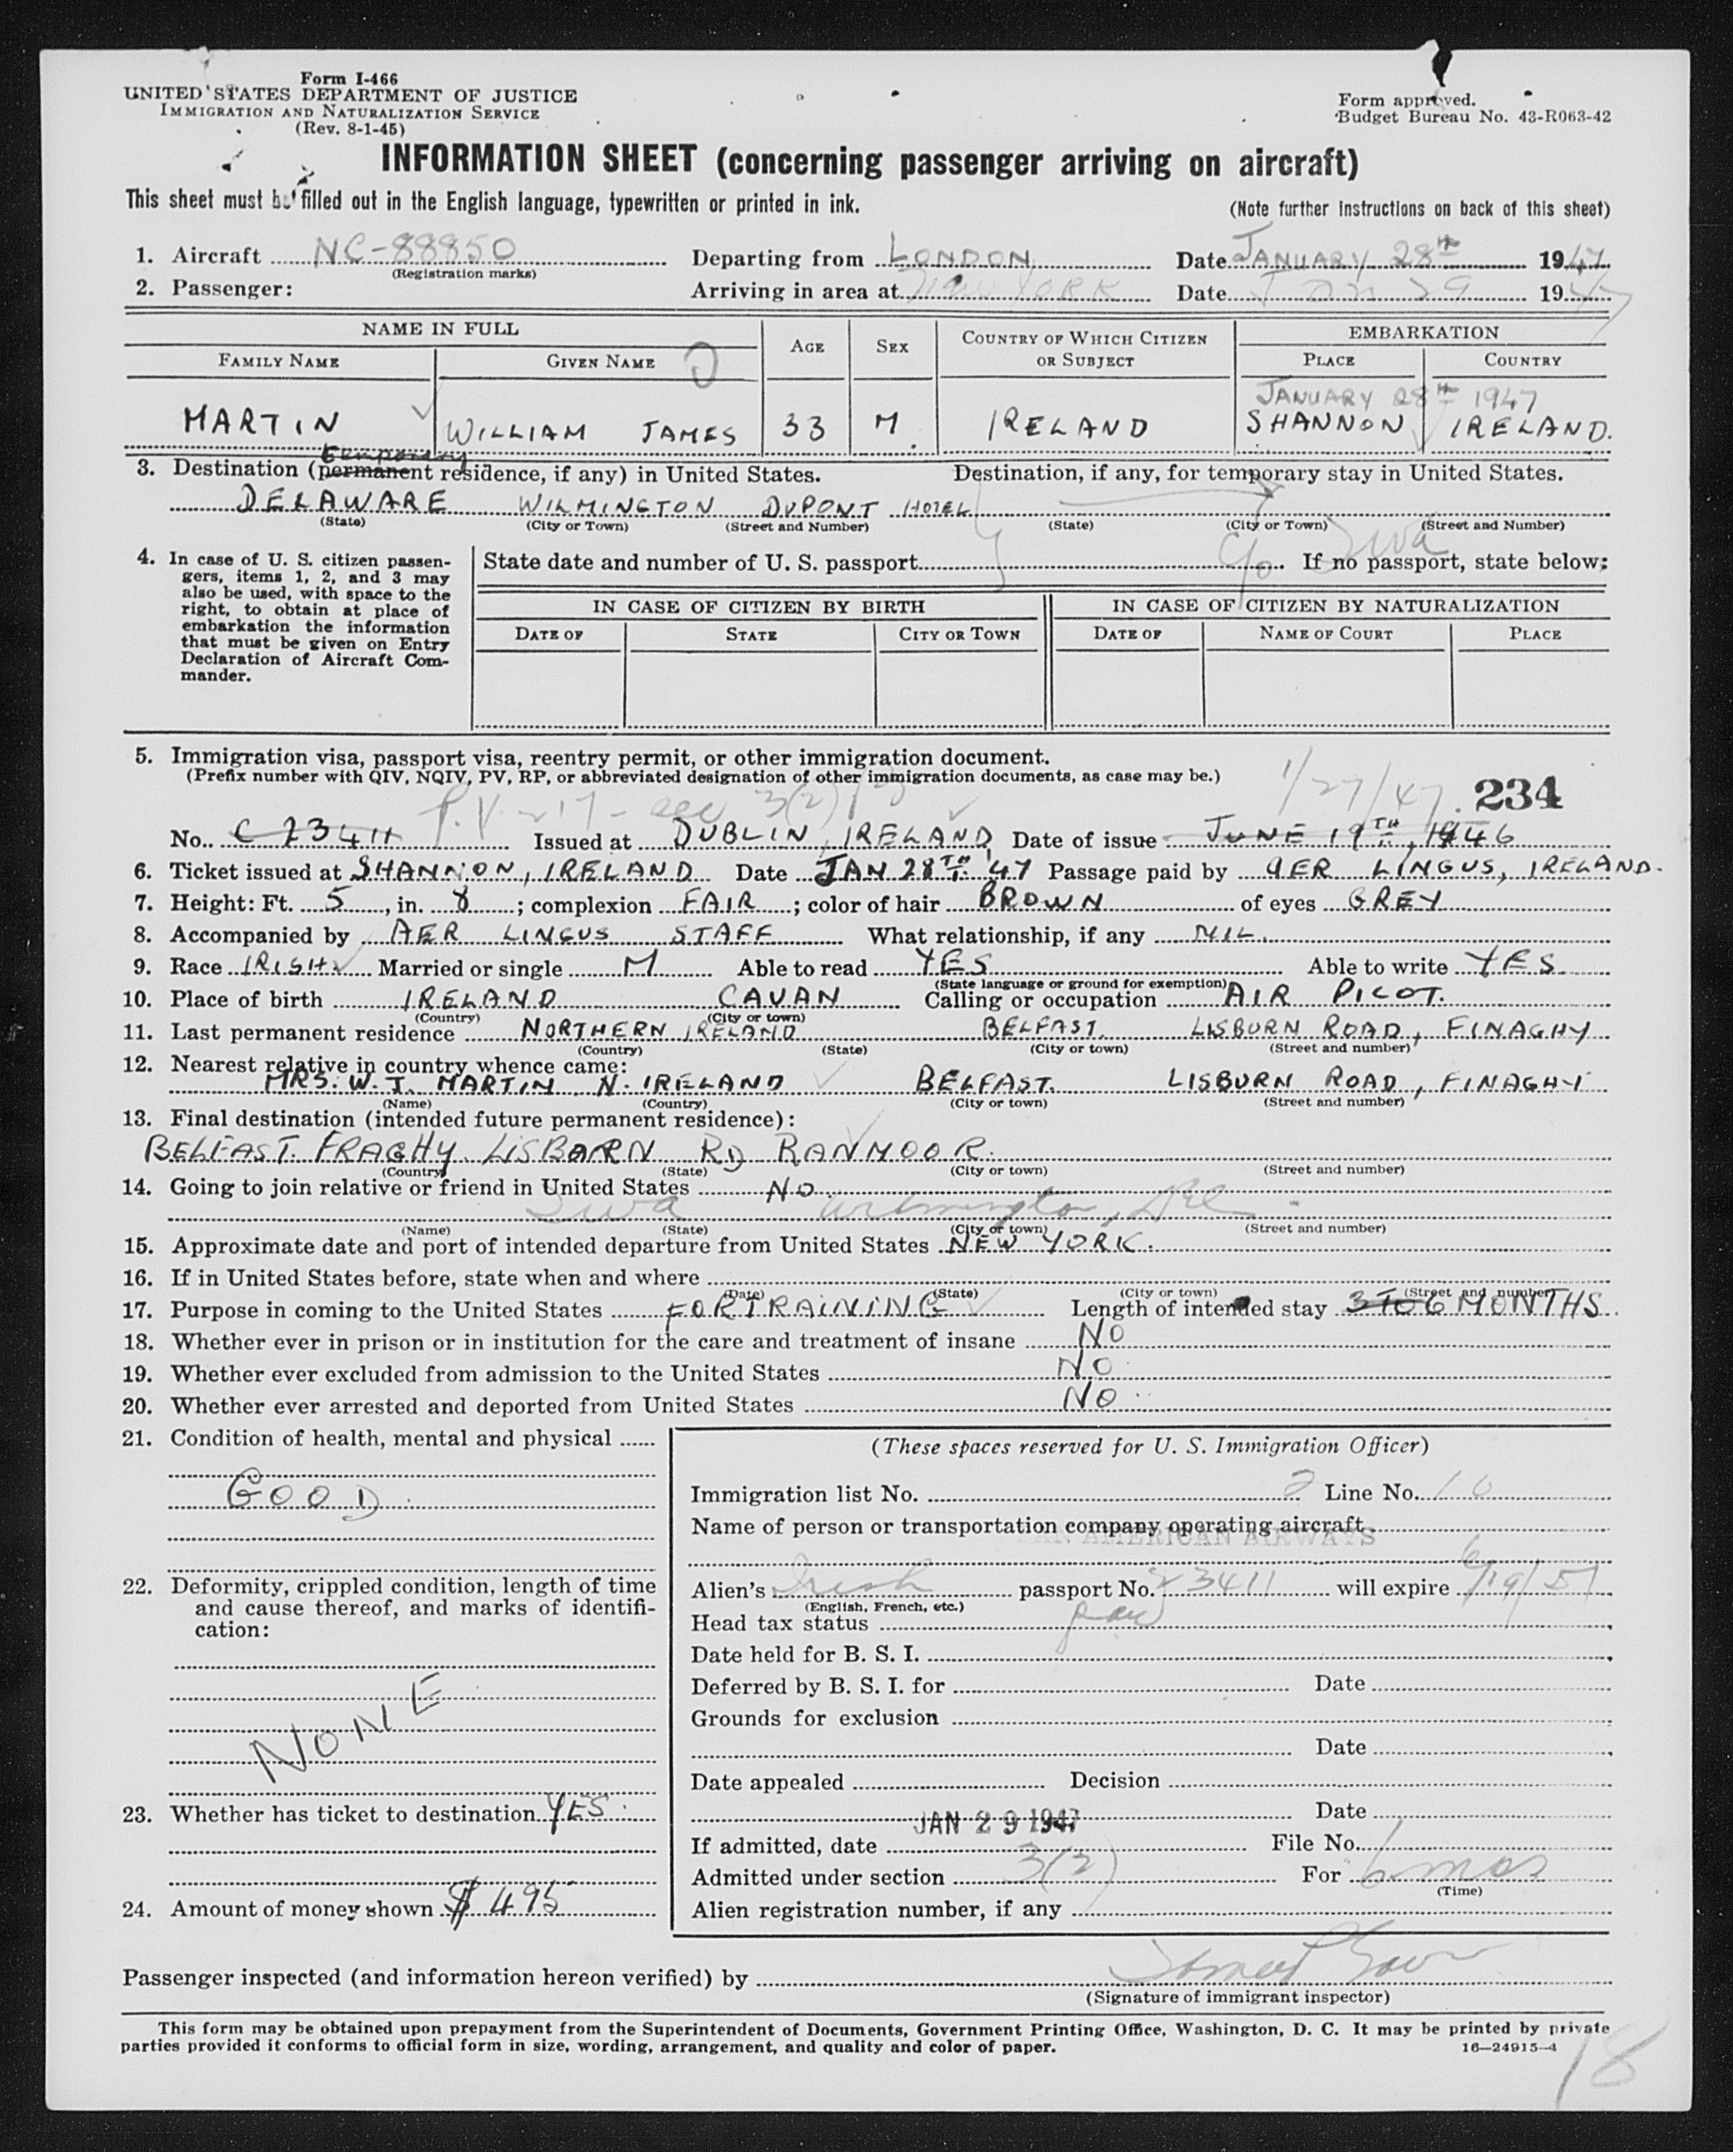 Form I-466
UNITED STATES DEPARTMENT OF JUSTICE
IMMIGRATION AND NATURALIZATION SERVICE
(Rev. 8-1-45)
Form approved.
Budget Bureau No. 43-R063-42
INFORMATION SHEET (concerning passenger arriving on aircraft)
This sheet must be filled out in the English language, typewritten or printed in ink.
(Note further instructions on back of this sheet)
1. Aircraft NC-88850 Departing from LONDON Date JANUARY 28th 1947
(Registration marks)
2. Passenger: Arriving in area at NEW YORK Date Jan 29 1947
NAME IN FULL AGE SEX COUNTRY OF WHICH CITIZEN OR SUBJECT EMBARKATION
FAMILY NAME GIVEN NAME PLACE COUNTRY
JANUARY 28th 1947
MARTIN WILLIAM JAMES 33 M. IRELAND SHANNON IRELAND.
temporary
3. Destination (permanent residence, if any) in United States. Destination, if any, for temporary stay in United States.
DELAWARE WILMINGTON DUPONT HOTEL
(State) (City or Town) (Street and Number) (State) (City or Town) (Street and Number)
4. In case of U. S. citizen passengers, items 1, 2, and 3 may also be used, with space to the right, to obtain at place of embarkation the information that must be given on Entry Declaration of Aircraft Commander.
State date and number of U. S. passport If no passport, state below:
IN CASE OF CITIZEN BY BIRTH IN CASE OF CITIZEN BY NATURALIZATION
DATE OF STATE CITY OR TOWN DATE OF NAME OF COURT PLACE
5. Immigration visa, passport visa, reentry permit, or other immigration document.
(Prefix number with QIV, NQIV, PV, RP, or abbreviated designation of other immigration documents, as case may be.)
P.V-217- sec 3(2) 1/27/47 234
No. C 23411 Issued at DUBLIN, IRELAND Date of issue JUNE 19TH, 1946
6. Ticket issued at SHANNON, IRELAND Date JAN 28TH '47 Passage paid by AER LINGUS, IRELAND.
7. Height: Ft. 5, in. 8; complexion FAIR; color of hair BROWN of eyes GREY
8. Accompanied by AER LINGUS STAFF What relationship, if any NIL.
9. Race IRISH Married or single M Able to read YES Able to write YES
(State language or ground for exemption)
10. Place of birth IRELAND CAVAN Calling or occupation AIR PILOT.
(Country) (City or town)
11. Last permanent residence NORTHERN IRELAND BELFAST. LISBURN ROAD, FINAGHY
(Country) (State) (City or town) (Street and number)
12. Nearest relative in country whence came:
MRS. W. J. MARTIN N. IRELAND BELFAST. LISBURN ROAD, FINAGHY
(Name) (Country) (City or town) (Street and number)
13. Final destination (intended future permanent residence):
BELFAST. FRAGHY LISBARN RD RANMOOR.
(Country) (State) (City or town) (Street and number)
14. Going to join relative or friend in United States NO
Wilmington, Del
(Name) (State) (City or town) (Street and number)
15. Approximate date and port of intended departure from United States NEW YORK.
16. If in United States before, state when and where
(Date) (State) (City or town) (Street and number)
17. Purpose in coming to the United States FOR TRAINING Length of intended stay 3 TO 6 MONTHS
18. Whether ever in prison or in institution for the care and treatment of insane NO
19. Whether ever excluded from admission to the United States NO
20. Whether ever arrested and deported from United States NO
21. Condition of health, mental and physical
GOOD
22. Deformity, crippled condition, length of time and cause thereof, and marks of identification:
NONE
23. Whether has ticket to destination YES
24. Amount of money shown $ 495
(These spaces reserved for U. S. Immigration Officer)
Immigration list No. 2 Line No. 10
Name of person or transportation company operating aircraft
PAN AMERICAN AIRWAYS
Alien's Irish passport No. 23411 will expire 6/19/51
(English, French, etc.)
Head tax status
Date held for B. S. I.
Deferred by B. S. I. for Date
Grounds for exclusion
Date
Date appealed Decision
Date
JAN 29 1947
If admitted, date File No.
Admitted under section 3(2) For 6 mos
(Time)
Alien registration number, if any
Passenger inspected (and information hereon verified) by
(Signature of immigrant inspector)
This form may be obtained upon prepayment from the Superintendent of Documents, Government Printing Office, Washington, D. C. It may be printed by private
parties provided it conforms to official form in size, wording, arrangement, and quality and color of paper.
16—24915-4
18